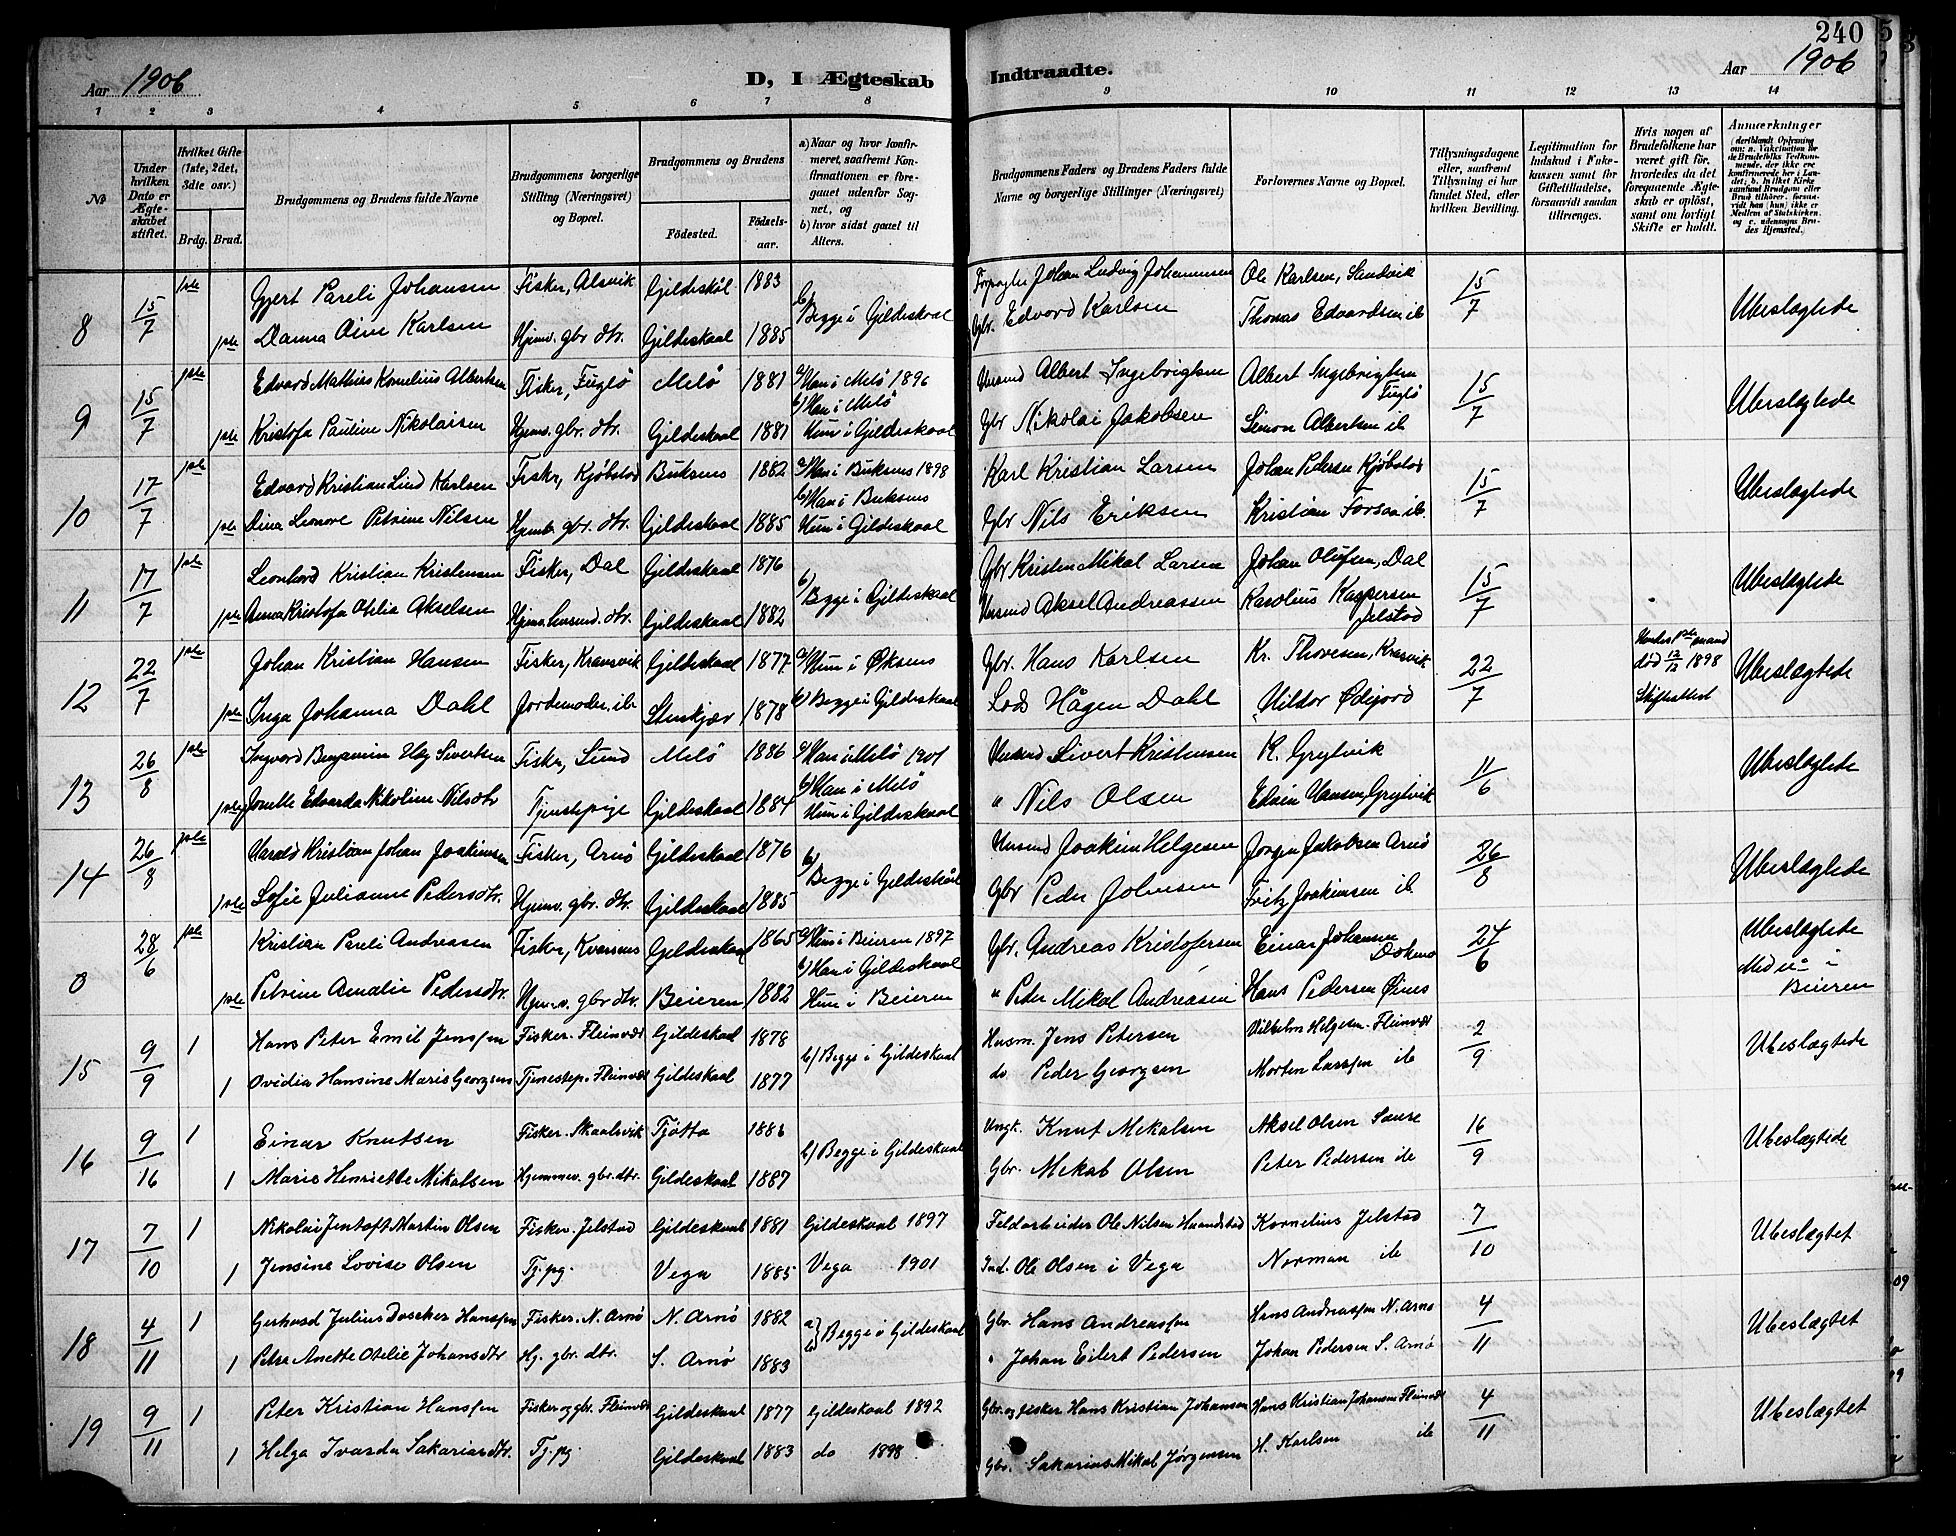 240
Aar 1906
D, I Ægteskab Indtraadte.
Aar 1906
1 2 3 4 5 6 7 8 9 10 11 12 13 14
No
Under hvilken Dato er Ægteskabet stiftet.
Hvilket Gifte (1ste, 2det, 3dte osv.)
Brdg. Brud.
Brudgommens og Brudens fulde Navne
Brudgommens borgerlige Stilling (Næringsvei) og Bopæl.
Brudgommens og Brudens
Fødested. Fødselsaar.
a) Naar og hvor konfirmeret, saafremt Konfirmationen er foregaaet udenfor Sognet, og
b) hvor sidst gaaet til Alters.
Brudgommens Faders og Brudens Faders fulde Navne og borgerlige Stillinger (Næringsvei)
Forlovernes Navne og Bopæl.
Tillysningsdagene eller, saafremt Tillysning ei har fundet Sted, efter hvilken Bevilling.
Legitimation for Indskud i Fakekassen samt for Giftetilladelse, forsaavidt saadan tiltrænges.
Hvis nogen af Brudefolkene har været gift før, hvorledes da det foregaaende Ægteskab er opløst, samt om lovligt Skifte er holdt.
Anmærkninger
8 15/7 1ste Gjert Pareli Johansen Fisker, Alsvik Gildeskål 1883 b) Begge i Gildeskaal Forpagter Johan Ludvig Johannesen Ole Karlsen, Sandvik 15/7 Ubeslægtede
1ste Danna Oine Karlsen Hjemv. gbr. dtr. Gildeskaal 1885 Gbr. Edvard Karlsen Thomas Edvardsen ib
9 15/7 1ste Edvard Mathias Kornelius Albertsen Fisker, Fuglø Melö 1881 a) Han i Melö 1896 Husmd Albert Ingebrigtsen Albert Ingebrigtsen Fuglö 15/7 Ubeslægtede
b) Han i Melö
1ste Kristofa Pauline Nikolaisen Hjemv. gbr. dtr. Gildeskaal 1881 Hun i Gildeskaal Gbr Nikolai Jakobsen Simon Albertsen ib
10 17/7 1ste Edvard Kristian Lind Karlsen Fisker, Kjøbstad Buksnes 1882 a) Han i Buksnes 1898 Karl Kristian Larsen Johan Pedersen Kjøbstad 15/7 Ubeslægtede
b) Han i Buksnes
1ste Dina Leonore Petrine Nilsen Hjemv. gbr. dtr. Gildeskaal 1885 Hun i Gildeskaal Gbr Nils Eriksen Kristian Forsaa ib.
11 17/7 1ste Leonhard Kristian Kristensen Fisker, Dal Gildeskaal 1876 b) Begge i Gildeskaal Gbr Kristen Mikal Larsen Johan Olufsen, Dal 15/7 Ubeslægtede
1ste Anna Kristofa Otelia Akselsen Hjemv. husmd. dtr. Gildeskaal 1882 Husmd Aksel Andreassen Karolius Kaspersen Jelstad
12 22/7 1ste Johan Kristian Hansen Fisker, Kransvik Gildeskaal 1877 a) Hun i Øksnes Gbr. Hans Karlsen Kr. Thoresen, Kransvik 22/7 Hendes 1ste mand død 12/12 1898 Skifteattest Ubeslægtede
1ste Inga Johanna Dahl Jordemoder, ib Stenkjær 1878 b) Begge i Gildeskaal Lods Hågen Dahl Hildor Ødejord
13 26/8 1ste Ingvard Benjamin Hag Sivertsen Fisker, Sund Melö 1886 a) Han i Melö 1901 Husmd Sivert Kristensen K. Grytvik 11/6 Ubeslægtede
b) Han i Melö
1ste Jonette Edvarda Nikoline Nilsdtr Tjenestepige Gildeskaal 1884 Hun i Gildeskaal " Nils Olsen Edvin Hansen, Grytvik
14 26/8 1ste Harald Kristian Johan Joakimsen Fisker, Arnø Gildeskaal 1876 b) Begge i Gildeskål Husmd Joakim Helgesen Jørgen Jakobsen Arnö 26/8 Ubeslægtede
1ste Sofie Julianne Pedersdtr. Hjemv. gbr. dtr. Gildeskaal 1885 Gbr Peder Johnsen Fritz Joakimsen ib.
0 28/6 1ste Kristian Pareli Andreasen Fisker, Kvarsnes Gildeskaal 1865 a) Hun i Beieren 1897 Gbr. Andreas Kristofersen Einar Johansen Dokmo 24/6 Ubeslægtede
b) Han i Gildeskaal Med no i
1ste Petrine Amalie Pedersdtr. Hjemv. gbr dtr. Beieren 1882 Hun i Beieren " Peter Mikal Andreasen Hans Pedersen Øines Beieren
15 9/9 1 Hans Peter Emil Jenssen Fisker. Fleinvær Gildeskaal 1878 b) Begge i Gildeskaal Husm. Jens Petersen Vilhelm Helgesen Fleinvær 2/9 Ubeslægtede
1 Ovidia Hansine Maris Georgsen Tjenestep. Fleinvær Gildeskaal 1877 do Peder Georgsen Morten Larssen ib
16 9/16 1 Einar Knutsen Fisker. Skaalsvik Tjötta 1886 b) Begge i Gildeskaal Ungk. Knut Mekalsen Aksel Olsen Saure 16/9 Ubeslægtede
1 Marie Henriette Mikalsen Hjemmev. gbr. dtr. Gildeskaal 1887 Gbr. Mekal Olsen Peter Pedersen ib
17 7/10 1 Nikolai Jentoft Martin Olsen Fisker. Jelstad Gildeskaal 1881 Gildeskaal 1897 Feldarbeider Ole Nilsen Haandstad Kornelius Jelstad 7/10 Ubeslægtet
1 Jensine Lovise Olsen Tj. pg. Vega 1885 Vega 1901 Ind. Ole Olsen i Vega Norman ib
18 4/11 1 Gerhard Julius Doscher Hanssen Fisker. N. Arnö N. Arnö 1882 a) b) Begge i Gildeskaal Gbr. Hans Andreassen Hans Andreassen N. Arnö 4/11 Ubeslægtet
1 Petra Anette Otelie Johansdtr Hj. gbr. dtr. S. Arnö 1883 " Johan Eilert Pedersen Johan Pedersen S. Arnö
19 9/11 1 Peter Kristian Hanssen Fisker og gbr. Fleinvær Gildeskaal 1877 Gildeskaal 1892 Gbr. og fisker Hans Kristian Johansen Hans Kristian Johansen Fleinvær 4/11 Ubeslægtet
1 Helga Ivarda Sakariasdtr. Tj. pg. Gildeskaal 1883 do 1898 Gbr. Sakarias Mikal Jörgensen H. Karlsen ib